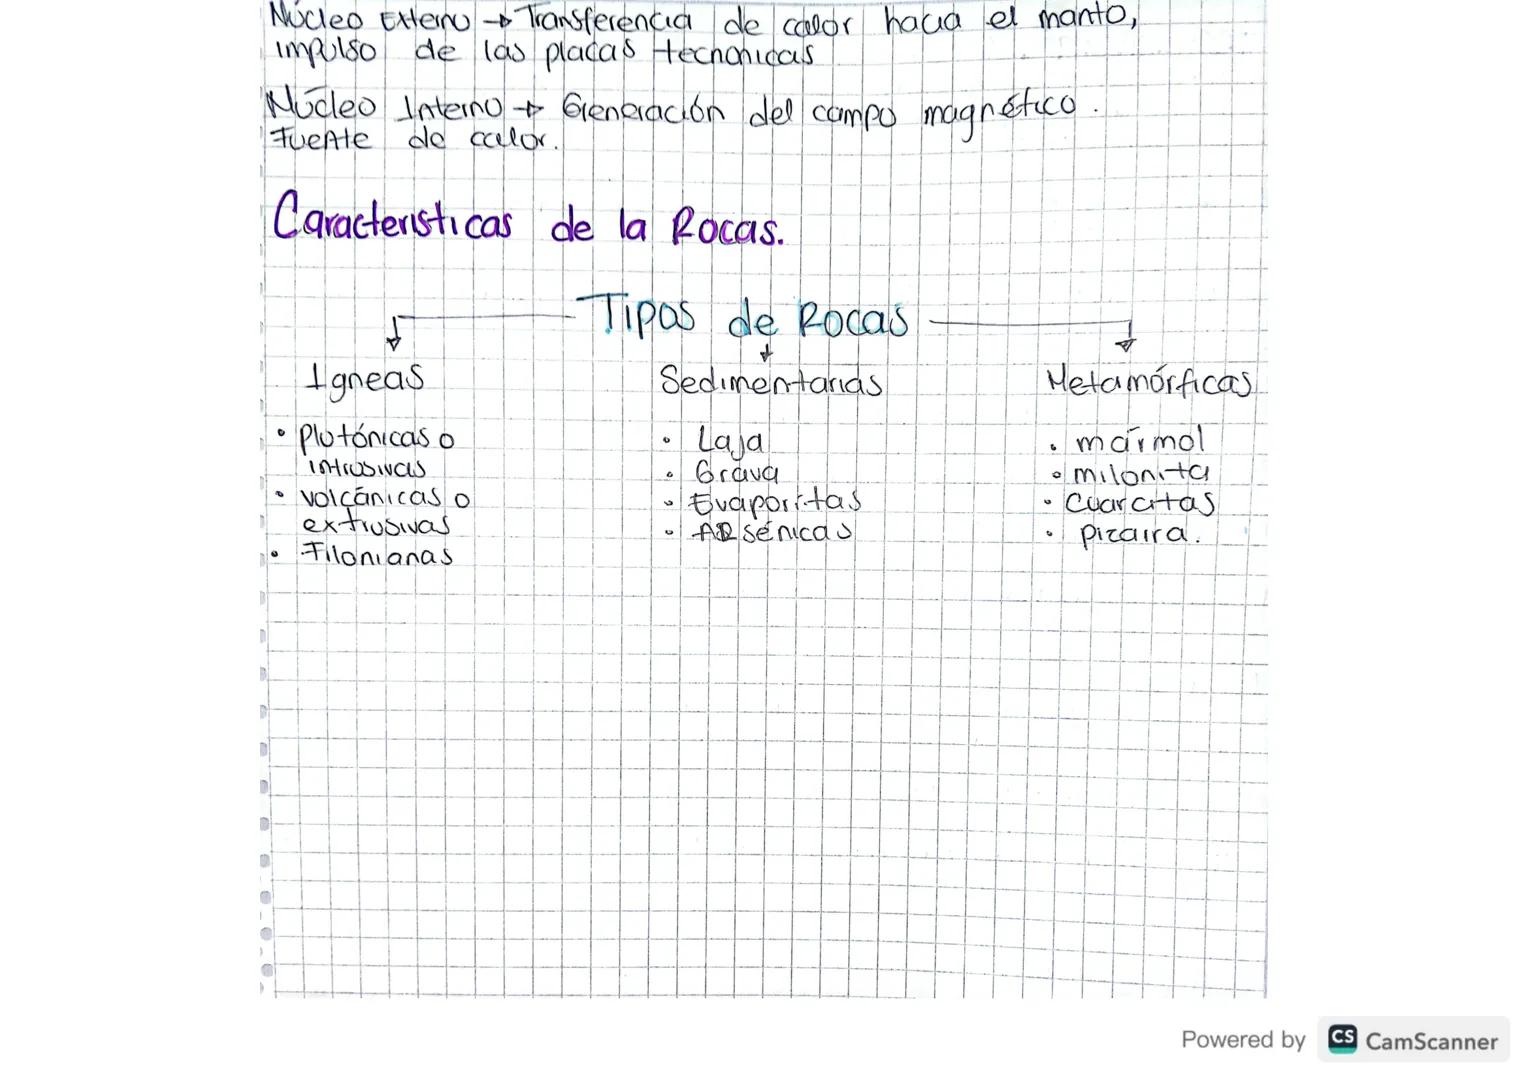 Núcleo Externo → Transferencia de calor hacia el manto,
impulso de las placas tecnonicas
Núcleo Interno → Generación del campo magnético.
Fuente de calor.
Caracteristicas de la Rocas.
Tipos de Rocas
Igneas
• Plutónicas o
intrusivas
• volcánicas o
extrusivas
• Filonianas
Sedimentarias
• Laja
• Grava
• Evaporitas
• ARsénicas
Metamórficas
• mármol
• milonita
• Cuarcitas
• pizarra.
Powered by CS CamScanner